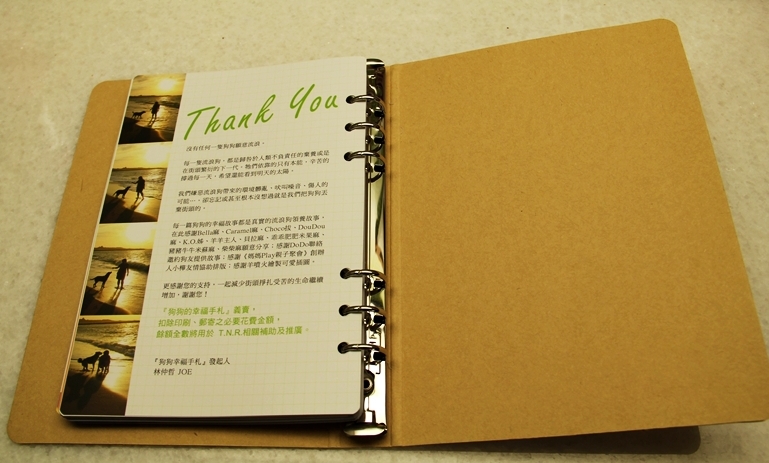 Thank You
沒有任何一隻狗狗願意流浪。
每一隻流浪狗，都是歸咎於人類不負責任的棄養或是
在街頭繁衍的下一代，牠們依靠的只有本能，辛苦的
撐過每一天，希望還能看到明天的太陽。
我們嫌惡流浪狗帶來的環境髒亂、吠叫噪音、傷人的
可能…，卻忘記或甚至根本沒想過就是我們把狗狗丟
棄街頭的。
每一篇狗狗的幸福故事都是真實的流浪狗領養故事，
在此感謝Bella麻、Caramel麻、Choco拔、DouDou
麻、K.O.姊、羊羊主人、貝拉麻、乖乖肥肥米果麻、
豬豬牛牛米蘇麻、柴柴麻願意分享；感謝DoDo聯絡
邀約狗友提供故事；感謝《媽媽Play親子聚會》創辦
人小樺友情協助排版；感謝羊噴火繪製可愛插圖。
更感謝您的支持，一起減少街頭掙扎受苦的生命繼續
增加，謝謝您！
「狗狗的幸福手札」義賣，
扣除印刷、郵寄之必要花費金額，
餘額全數將用於 T.N.R.相關補助及推廣。
『狗狗幸福手札』發起人
林仲哲 JOE